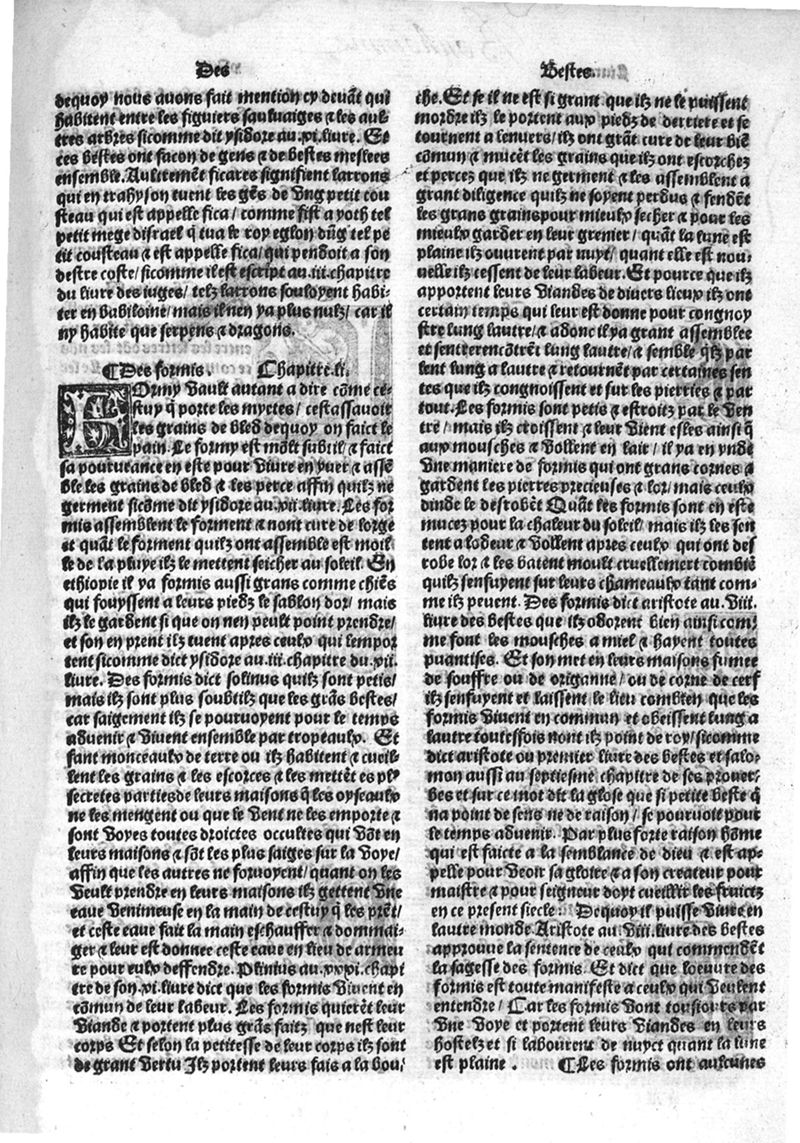 Des
Bestes.
dequoy nous auons fait mention cy deuãt qui
habitent entre les figuiers sauluaiges & les aul
tres arbres sicomme dit ysidore au.xi.liure. Et
ces bestes ont facon de gens & de bestes meslees
ensemble. Aultremẽt ficares signifient larrons
qui en trahyson tuent les gẽs de vng petit cou
steau qui est appelle fica/ comme fist ayoth tel
petit mege disrael q̃ tua le roy eglon dũg tel pe
tit cousteau & est appelle fica/ qui pendoit a son
destre coste/ sicomme il est escript au.iii.chapitre
du liure des iuges/ telz larrons souloyent habi-
ter en babiloine/ mais il nen ya plus nulz/ car il
ny habite que serpens & dragons.
¶Des formis. Chapitre.li.
FOrmy vault autant a dire cõme ce-
stuy q̃ porte les myctes/ cestassauoir
les grains de bled dequoy on faict le
pain. Le formy est mõlt subtil/ & faict
sa pourueance en este pour viure en yuer & assẽ
ble les grains de bled & les perce affin quilz ne
germent sicõme dit ysidore au.vii.liure. Les for
mis assemblent le forment & nont cure de lorge
et quãt le forment quilz ont assemble est moil
le de la pluye ilz le mettent seicher au soleil. En
ethiopie il ya formis aussi grans comme chiẽs
qui fouyssent a leurs piedz le sablon dor/ mais
ilz le gardent si que on nen peult point prendre/
et son en prent ilz tuent apres ceulx qui lempor
tent sicomme dict ysidore au.iii.chapitre du.vii.
liure. Des formis dict solinus quilz sont petis/
mais ilz sont plus soubtilz que les grãs bestes/
car saigement ilz se pouruoyent pour le temps
aduenir & viuent ensemble par tropeaulx. Et
fant monceaulx de terre ou ilz habitent & cueil
lent les grains & les escorces & les mettẽt es pl᷒
secretes parties de leurs maisons q̃ les oyseaulx
ne les mengent ou que le vent ne les emporte &
sont voyes toutes droictes occultes qui võt en
leurs maisons & sõt les plus saiges sur la voye/
affin que les autres ne foruoyent/ quant on les
veult prendre en leurs maisons ilz gettent vne
eaue venimeuse en la main de cestuy q̃ les prẽt/
et ceste eaue fait la main eschauffer & dommai-
ger & leur est donnee ceste eaue en lieu de armeu
re pour eulx deffendre. Plinius au.xxxi.chapi
tre de son.xi.liure dict que les formis viuent en
cõmun de leur labeur. Les formis quierẽt leur
viande & portent plus grãs faitz que nest leur
corps Et selon la petitesse de leur corps ilz sont
de grant vertu Ilz portent leurs fais a la bou-
che. Et se il ne est si grant que ilz ne le puissent
mordre ilz le portent aux piedz de derriere et se
tournent a lenuers/ ilz ont grãt cure de leur biẽ
cõmun & mucẽt les grains que ilz ont escorchez
et percez que ilz ne germent & les assemblent a
grant diligence quilz ne soyent perdus & fendẽt
les grans grains pour mieulx secher & pour les
mieulx garder en leur grenier/ quãt la lune est
plaine ilz ouurent par nuyt/ quant elle est nou-
uelle ilz cessent de leur labeur. Et pource que ilz
apportent leurs viandes de diuers lieux ilz ont
certain temps qui leur est donne pour congnoy
stre lung lautre/ & adonc il ya grant assemblee
et sentrerencõtrẽt lung lautre/ & semble q̃lz par
lent lung a lautre & retournẽt par certaines sen
tes que ilz congnoissent et sur les pierries & par
tout. Les formis sont petis & estroitz par le ven
tre/ mais ilz croissent & leur vient esles ainsi q̃
aux mousches & vollent en lair/ il ya en ynde
vne maniere de formis qui ont grans cornes &
gardent les pierres precieuses & lor/ mais ceulx
dinde le desrobẽt Quãt les formis sont en este
mucez pour la chaleur du soleil/ mais ilz les sen
tent a lodeur & vollent apres ceulx qui ont des
robe lor & les batent moult cruellement combiẽ
quilz senfuyent sur leurs chameaulx tant com-
me ilz peuent. Des formis dict aristote au.viii.
liure des bestes que ilz odorent bien ainsi com-
me font les mousches a miel & hayent toutes
puantises. Et son met en leurs maisons fumee
de souffre ou de origanne/ ou de corne de cerf
ilz senfuyent et laissent le lieu combien que les
formis viuent en commun et obeissent lung a
lautre toutesfois nont ilz point de roy/ sicomme
dict aristote ou premier liure des bestes et salo-
mon aussi au septiesme chapitre de ses prouer-
bes et sur ce mot dit la glose que si petite beste q̃
na point de sens ne de raison/ se pouruoit pour
le temps aduenir. Par plus forte raison hõme
qui est faicte a la semblance de dieu & est ap-
pelle pour veoir sa gloire & a son createur pour
maistre & pour seigneur doyt cueillir les fruictz
en ce present siecle: Dequoy il puisse viure en
lautre monde. Aristote au viii.liure des bestes
approuue la sentence de ceulx qui commendẽt
la sagesse des formis. Et dict que loeuure des
formis est toute manifeste a ceulx qui veulent
entendre/ Car les formis vont tousiours par
vne voye et portent leurs viandes en leurs
hostelz et si labourent de nuyct quant la lune
est plaine. ¶Les formis ont aulcunes